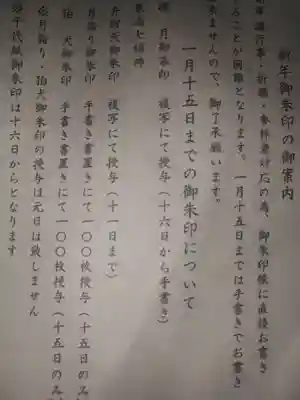 新年御朱印の御案内
新年諸行事・祈願・参拝者対応の為、御朱印帳に直接お書き
することが困難となります。一月十五日までは手書きでお書き
出来ませんので、御了承願います。
一月十五日までの御朱印について
月御朱印 複写にて授与(十六日から手書き)
七福神
弁財天御朱印 複写にて授与(十一日まで)
月詣り御朱印 手書き書置きにて一〇〇枚授与(十五日のみ)
狛犬御朱印 手書き書置きにて一〇〇枚授与(十五日のみ)
※月詣り・狛犬御朱印の授与は元日は致しません
千代紙御朱印は十六日からとなります